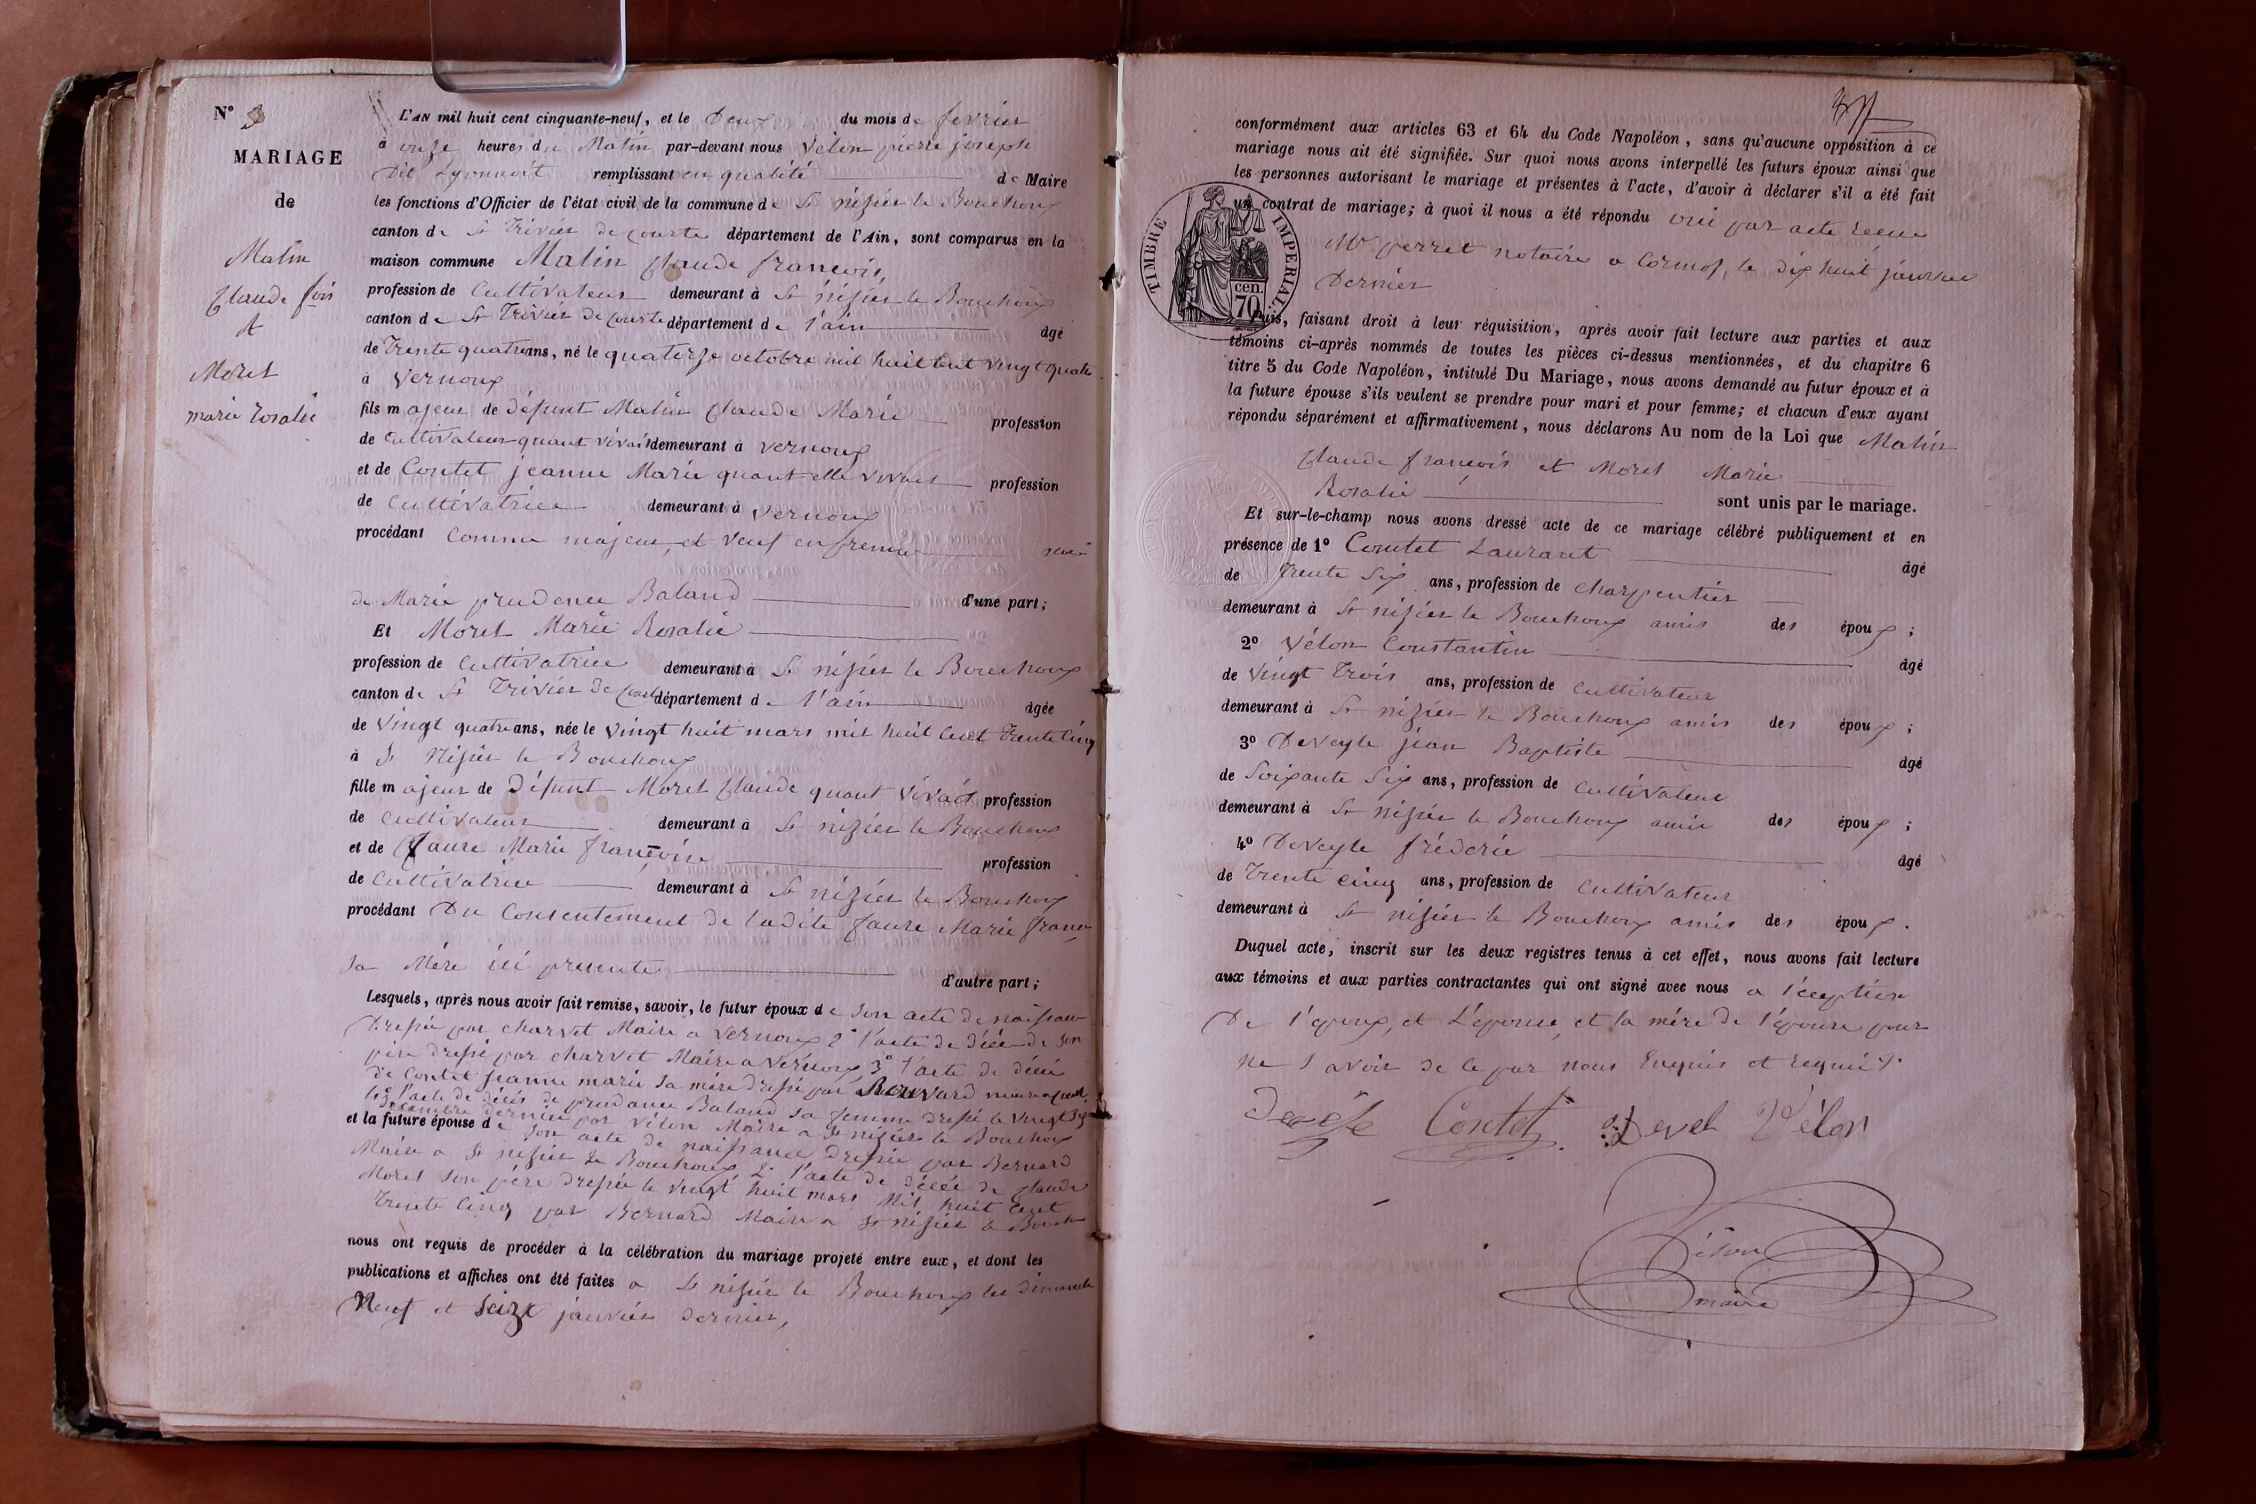 N° 3
MARIAGE
de
Malin
Claude fois
et
Moret
marie rosalie
L'AN mil huit cent cinquante-neuf, et le Deux du mois de fevrier
à onze heures du Matin par-devant nous Vélon pierre joseph
Dit Lyonnait remplissant en qualité de Maire
les fonctions d'Officier de l'état civil de la commune de St nisier le Bouchoux
canton de St Trivier de courte département de l'Ain, sont comparus en la
maison commune Malin Claude françois,
profession de Cultivateur demeurant à St nisier le Bouchoux
canton de St Trivier de Courte département de l'ain âgé
de Trente quatre ans, né le quatorze octobre mil huit cent vingt quatre
à Vernoux
fils majeur de défunt Malin Claude Marie profession
de Cultivateur quant vivait demeurant à Vernoux
et de Contet jeanne Marie quant elle vivait profession
de Cultivatrice demeurant à Vernoux
procédant Comme majeur, et Veuf en premier
de Marie prudence Baland d'une part;
Et Moret Marie Rosalie
profession de Cultivatrice demeurant à St nisier le Bouchoux
canton de St Trivier de Court département de l'ain âgée
de vingt quatre ans, née le vingt huit mars mil huit cent Trente Cinq
à St Nisier le Bouchoux
fille majeur de Défunt Moret Claude quant vivait profession
de Cultivateur demeurant à St nizier le Bouchoux
et de faure Marie françoise profession
de Cultivatrice demeurant à St nisier le Bouchoux
procédant Du Consentement de ladite faure Marie franç
sa Mère ici presente d'autre part;
Lesquels, après nous avoir fait remise, savoir, le futur époux de son acte de naissance
Dressée par charvet Maire a Vernoux 2° l'acte de décé de son
père dressé par charvet Maire a Vernoux 3° l'acte de décé
de Contet jeanne marie sa mère dressé par Bouvard
l'acte de décés de prudance Baland sa femme dressé le vingt
decembre dernier par Vélon Maire a St nisier le Bouchoux
et la future épouse de son acte de naissance dressée par Bernard
Maire a St nisier le Bouchoux 2° l'acte de décée de Claude
Moret son père dressée le vingt huit mars Mil huit Cent
trente Cinq par Bernard Maire a St nisier le Bouch
nous ont requis de procéder à la célébration du mariage projeté entre eux, et dont les
publications et affiches ont été faites a St nisier le Bouchoux les dimanche
Neuf et Seize janvier dernier,
conformément aux articles 63 et 64 du Code Napoléon, sans qu'aucune opposition à ce
mariage nous ait été signifiée. Sur quoi nous avons interpellé les futurs époux ainsi que
les personnes autorisant le mariage et présentes à l'acte, d'avoir à déclarer s'il a été fait
un contrat de mariage; à quoi il nous a été répondu oui par acte recue
Mr perret notaire a Cormoz, le dix huit janvier
Dernier
TIMBRE IMPERIAL
70 cen.
Puis, faisant droit à leur réquisition, après avoir fait lecture aux parties et aux
témoins ci-après nommés de toutes les pièces ci-dessus mentionnées, et du chapitre 6
titre 5 du Code Napoléon, intitulé Du Mariage, nous avons demandé au futur époux et à
la future épouse s'ils veulent se prendre pour mari et pour femme; et chacun d'eux ayant
répondu séparément et affirmativement, nous déclarons Au nom de la Loi que Malin
Claude françois et Moret Marie
Rosalie sont unis par le mariage.
Et sur-le-champ nous avons dressé acte de ce mariage célébré publiquement et en
présence de 1° Contet Laurant âgé
de Trente Six ans, profession de Charpentier
demeurant à St nisier le Bouchoux amis des époux;
2° Vélon Constantin âgé
de vingt Trois ans, profession de Cultivateur
demeurant à St nisier le Bouchoux amis des époux;
3° Deveyle jean Baptiste âgé
de Soixante Six ans, profession de Cultivateur
demeurant à St nisier le Bouchoux amis des époux;
4° Deveyle fréderic âgé
de Trente cinq ans, profession de Cultivateur
demeurant à St nisier le Bouchoux amis des époux.
Duquel acte, inscrit sur les deux registres tenus à cet effet, nous avons fait lecture
aux témoins et aux parties contractantes qui ont signé avec nous a l'éception
De l'epoux, et L'épouse, et la mère de l'épouse pour
ne savoir de ce par nous Enquis et requis.
Contet Devel Vélon
Vélon
maire